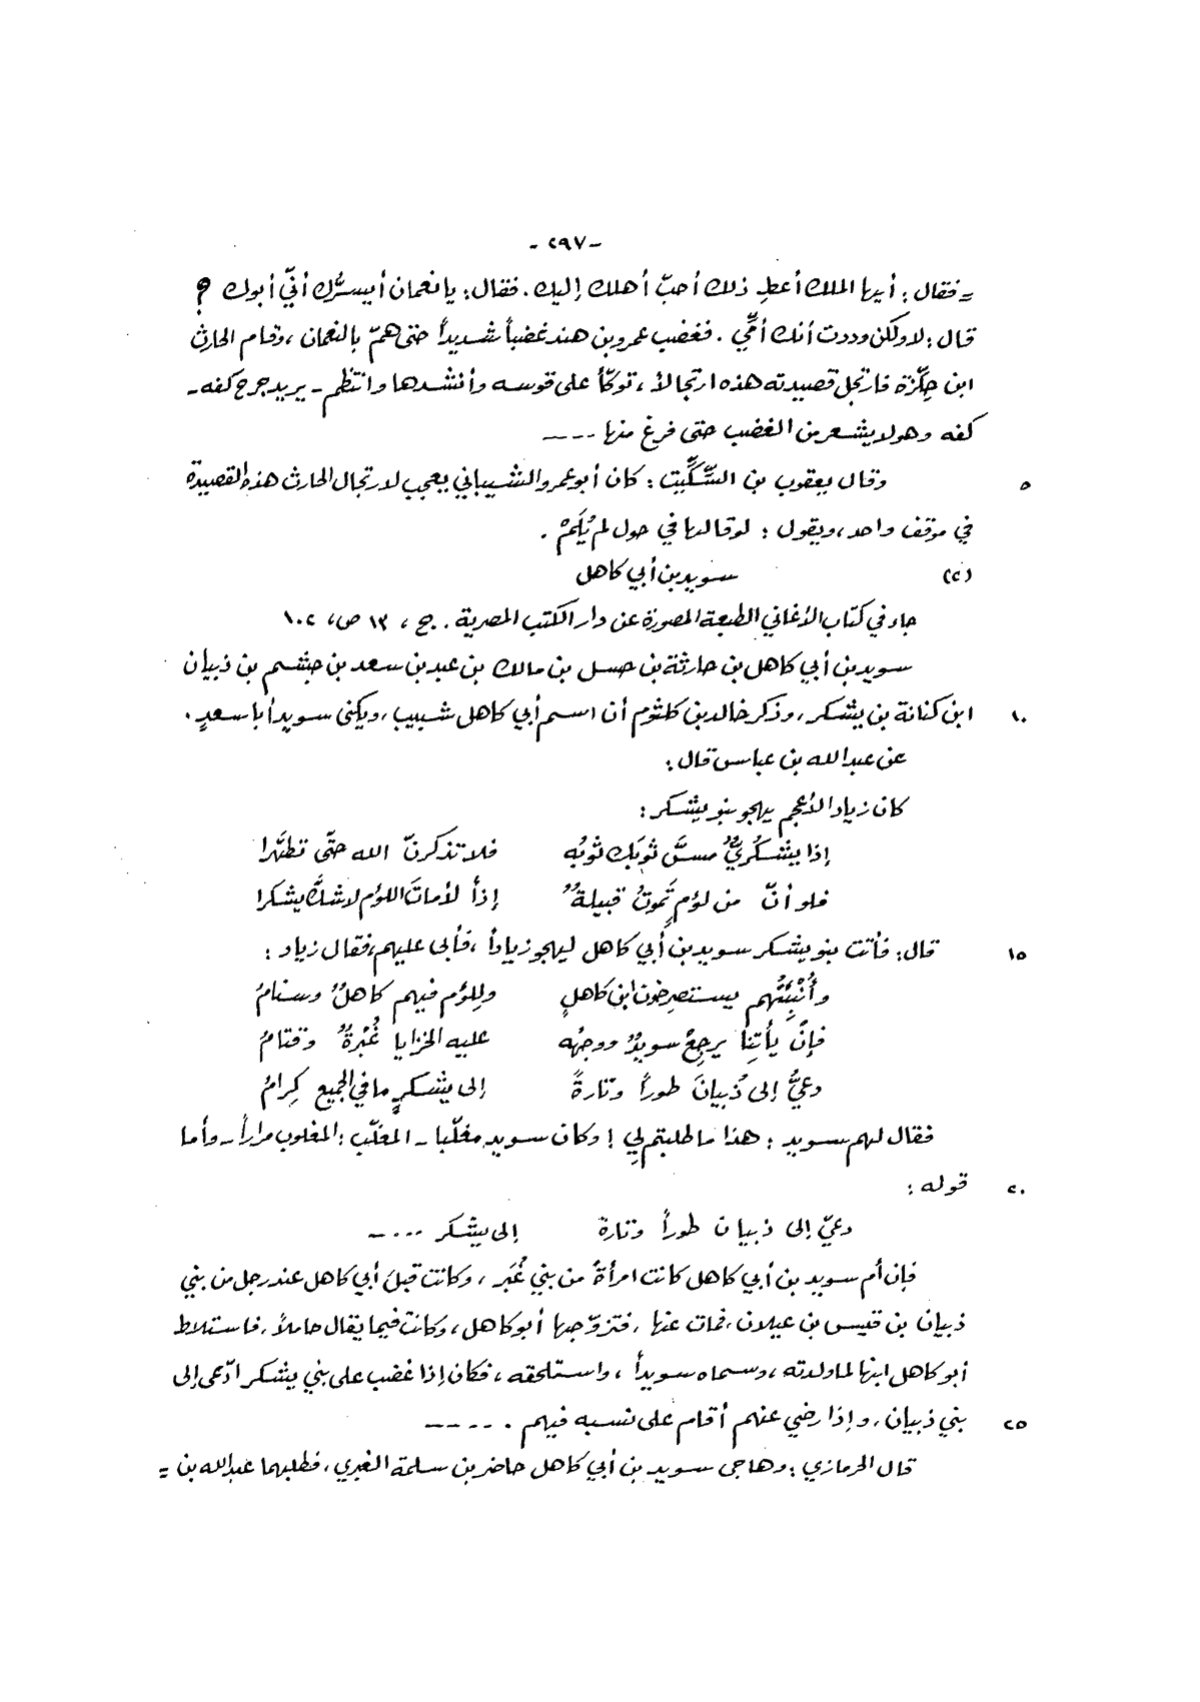 - ٢٩٧ -
= فقال : أيها الملك أعطِ ذلك أحبّ أهلك إليك . فقال : يا نعمان أيسرُّك أنّي أبوك ؟
قال : لا ولكن وددت أنك أمّي . فغضب عمرو بن هند غضباً شديداً حتى همّ بالنعمان ، وقام الحارث
ابن حِلِّزة فارتجل قصيدته هذه ارتجالاً ، توكّأ على قوسه وأنشدها وانتظم - يريد جرح كفه -
كفه وهو لا يشعر من الغضب حتى فرغ منها ----
٥ وقال يعقوب بن السِّكِّيت : كان أبو عمرو الشيباني يعجب لارتجال الحارث هذه القصيدة
في موقف واحد ، ويقول : لو قالها في حول لم يُلَمْ .
(٢) سويد بن أبي كاهل
جاء في كتاب الأغاني الطبعة المصورة عن دار الكتب المصرية . ج ، ١٣ ص ، ١٠٢
سويد بن أبي كاهل بن حارثة بن حسل بن مالك بن عبد بن سعد بن جشم بن ذبيان
١٠ ابن كنانة بن يشكر ، وذكر خالد بن كلثوم أن اسم أبي كاهل شبيب ، ويكنى سويد أبا سعدٍ .
عن عبد الله بن عباس قال :
كان زياد الأعجم يهجو بنو يشكر :
إذا يشكُريٌّ مسَّ ثوبَك ثوبُه فلا تذكرنّ الله حتّى تطهَّرا
فلو أنّ من لؤمٍ تَموتُ قبيلةٌ إذاً لأماتَ اللؤم لا شكَّ يشكرا
١٥ قال : فأتت بنو يشكر سويد بن أبي كاهل ليهجو زياداً ، فأبى عليهم ، فقال زياد :
وأُنْبِئْتُهم يستصرخون ابن كاهلٍ وللؤم فيهم كاهلٌ وسنامُ
فإنْ يأتِنا يرجِعْ سويدٌ ووجهُه عليه الخزايا غُبْرةٌ وقتامُ
دعيٌّ إلى ذُبيانَ طوراً وتارةً إلى يشكرٍ ما في الجميع كِرامُ
فقال لهم سويد : هذا ما طلبتم لي ! وكان سويد مغلّبا - المغلّب : المغلوب مراراً - وأما
٢٠ قوله :
دعيّ إلى ذبيان طوراً وتارة إلى يشكر ----
فإن أم سويد بن أبي كاهل كانت امرأةً من بني غُبَر ، وكانت قبلَ أبي كاهل عند رجل من بني
ذبيان بن قيس بن عيلان ، فمات عنها ، فتزوّجها أبو كاهل ، وكانت فيما يقال حاملاً ، فاستلاط
أبو كاهل ابنها لما ولدته ، وسماه سويداً ، واستلحقه ، فكان إذا غضب على بني يشكر ادّعى إلى
٢٥ بني ذبيان ، وإذا رضي عنهم أقام على نسبه فيهم . ----
قال الحرمازي : وهاجى سويد بن أبي كاهل حاضر بن سلمة الغبري ، فطلبهما عبد الله بن =